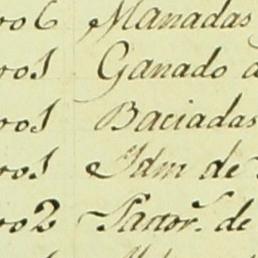 ro6 Manadas
ro1 Ganado d
ro1 Baciadas
ro1 Idm de
ro2 Factor.^ de